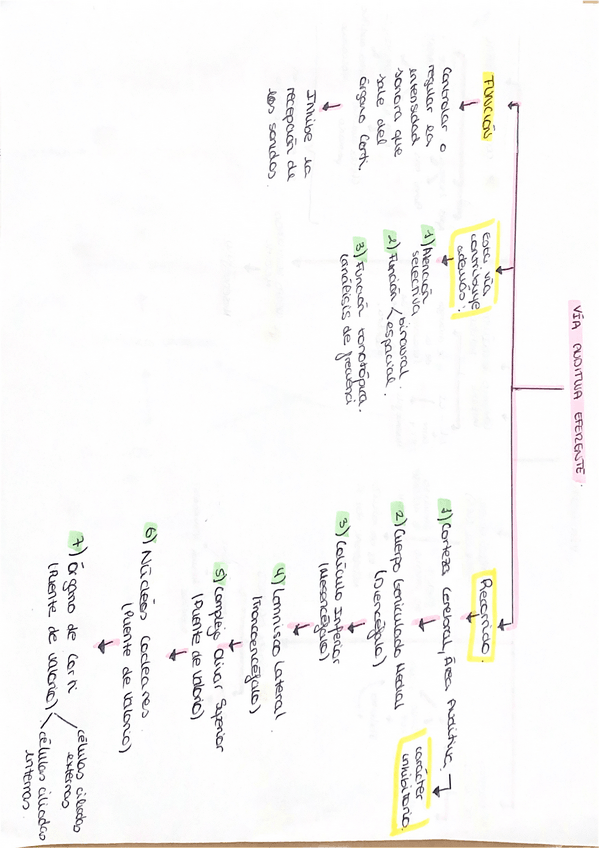 VÍA AUDITIVA EFERENTE.
FUNCIÓN
Controlar o
regular la
intensidad
sonora que
sale del
órgano Corti.
Inhibe la
recepción de
los sonidos.
Esta vía
contribuye
además:
1) Atención
selectiva
2) Función binaural.
espacial.
3) Función tonotópica.
(análisis de frecuenci
Recorrido.
1) Corteza Cerebral, Área Auditiva.
carácter
inhibitorio.
2) Cuerpo Geniculado Medial
(Diencéfalo)
3) Colículo Inferior
(Mesencéfalo)
4) Lemnisco Lateral
(Troncoencéfalo)
5) Complejo Olivar Superior
(Puente de Valorio)
6) Núcleos Cocleares
(Puente de Valorio)
7) Órgano de Corti
(Puente de Valorio)
células ciliadas
externas
células ciliadas
internas.